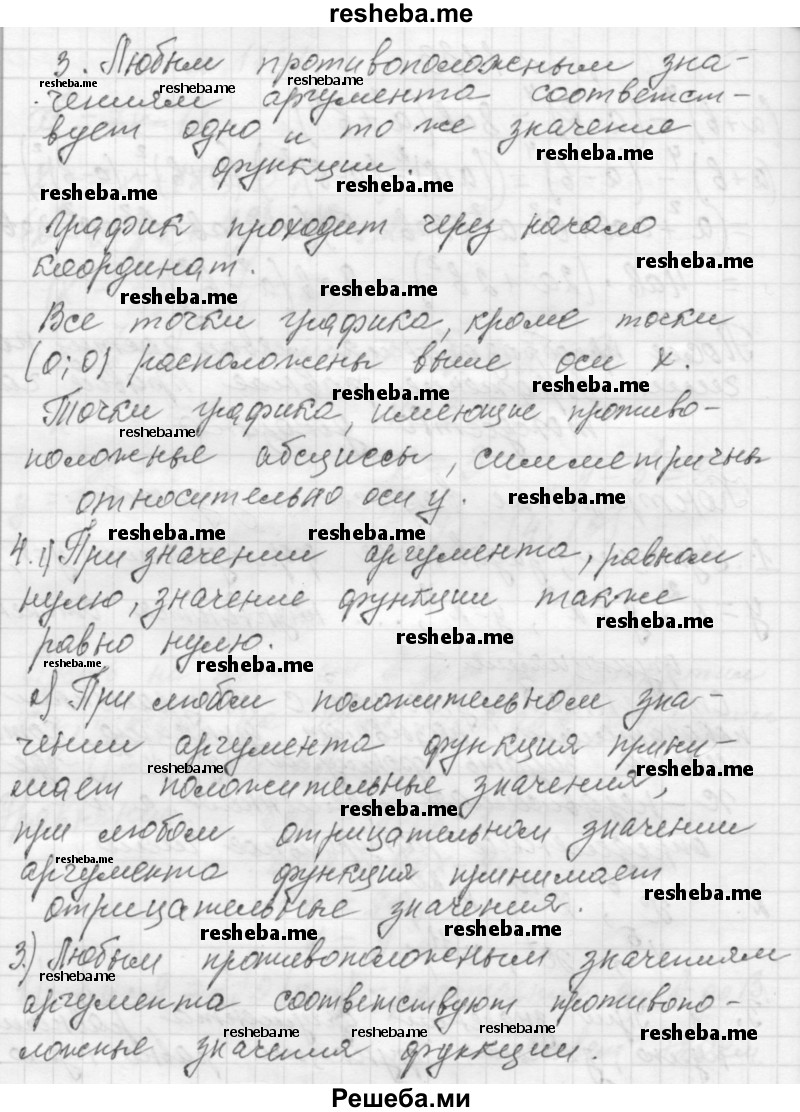 resheba.me
3. Любым противоположным зна-
resheba.me resheba.me resheba.me
чениям аргумента соответст-
вует одно и то же значение
resheba.me
функции.
resheba.me resheba.me
График проходит через начало
resheba.me
координат.
resheba.me resheba.me
Все точки графика, кроме точки
(0; 0) расположены выше оси х.
resheba.me resheba.me
Точки графика, имеющие противо-
resheba.me
положные абсциссы, симметричны
относительно оси у.
resheba.me
resheba.me resheba.me
4. 1) При значении аргумента, равном
нулю, значение функции также
resheba.me
равно нулю.
resheba.me
resheba.me resheba.me
2) При любом положительном зна-
чении аргумента функция прини-
resheba.me resheba.me
мает положительные значения,
resheba.me
при любом отрицательном значении
resheba.me
аргумента функция принимает
resheba.me
отрицательные значения.
resheba.me resheba.me
3.) Любым противоположным значениям
resheba.me
аргумента соответствуют противопо-
resheba.me resheba.me resheba.me resheba.me
ложные значения функции.
Решеба.ми